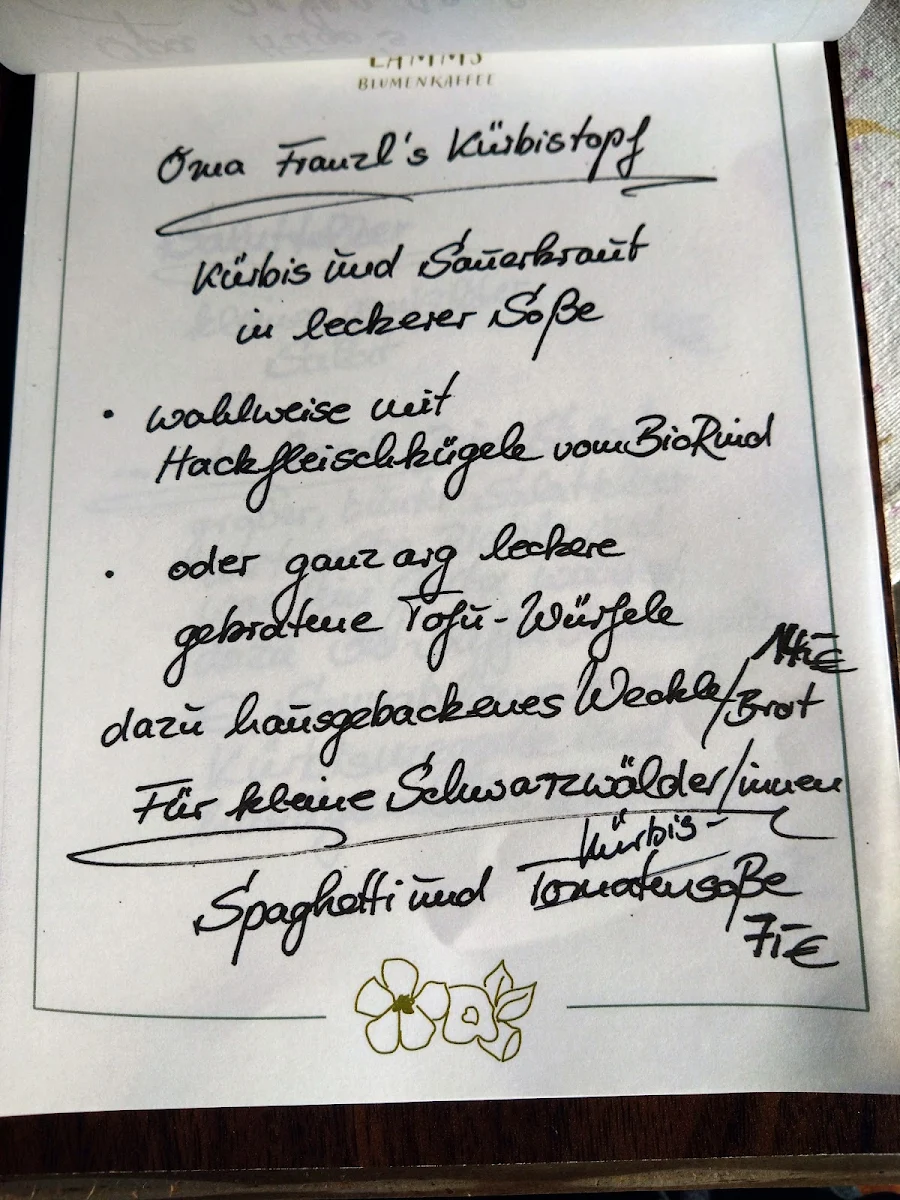 LAMMS
BLUMENKAFFEE
Oma Franzl's Kürbistopf
Kürbis und Sauerkraut
in leckerer Soße
• wahlweise mit
Hackfleischkügele vom BioRind
• oder ganz arg leckere
gebratene Tofu-Würfele
dazu hausgebackenes Weckle/Brot
Für kleine Schwarzwälder/innen
Kürbis-
Spaghetti und Tomatensoße
7,-€